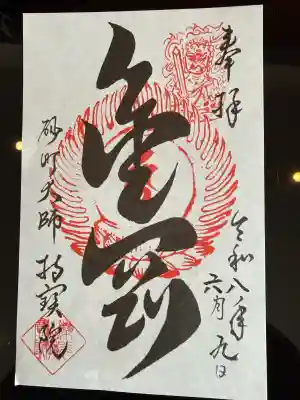 奉拝
令和八年
六月九日
金剛
砂町大師 持寶院